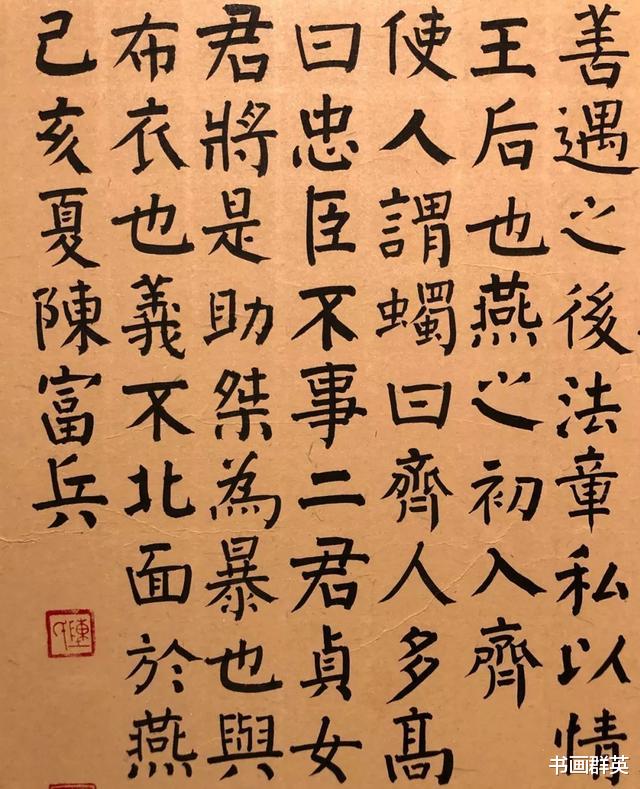 善遇之後法章私以情
王后也燕之初入齊
使人謂蠋曰齊人多高
曰忠臣不事二君貞女
君將是助桀為暴也與
布衣也義不北面於燕
己亥夏陳富兵
书画群英